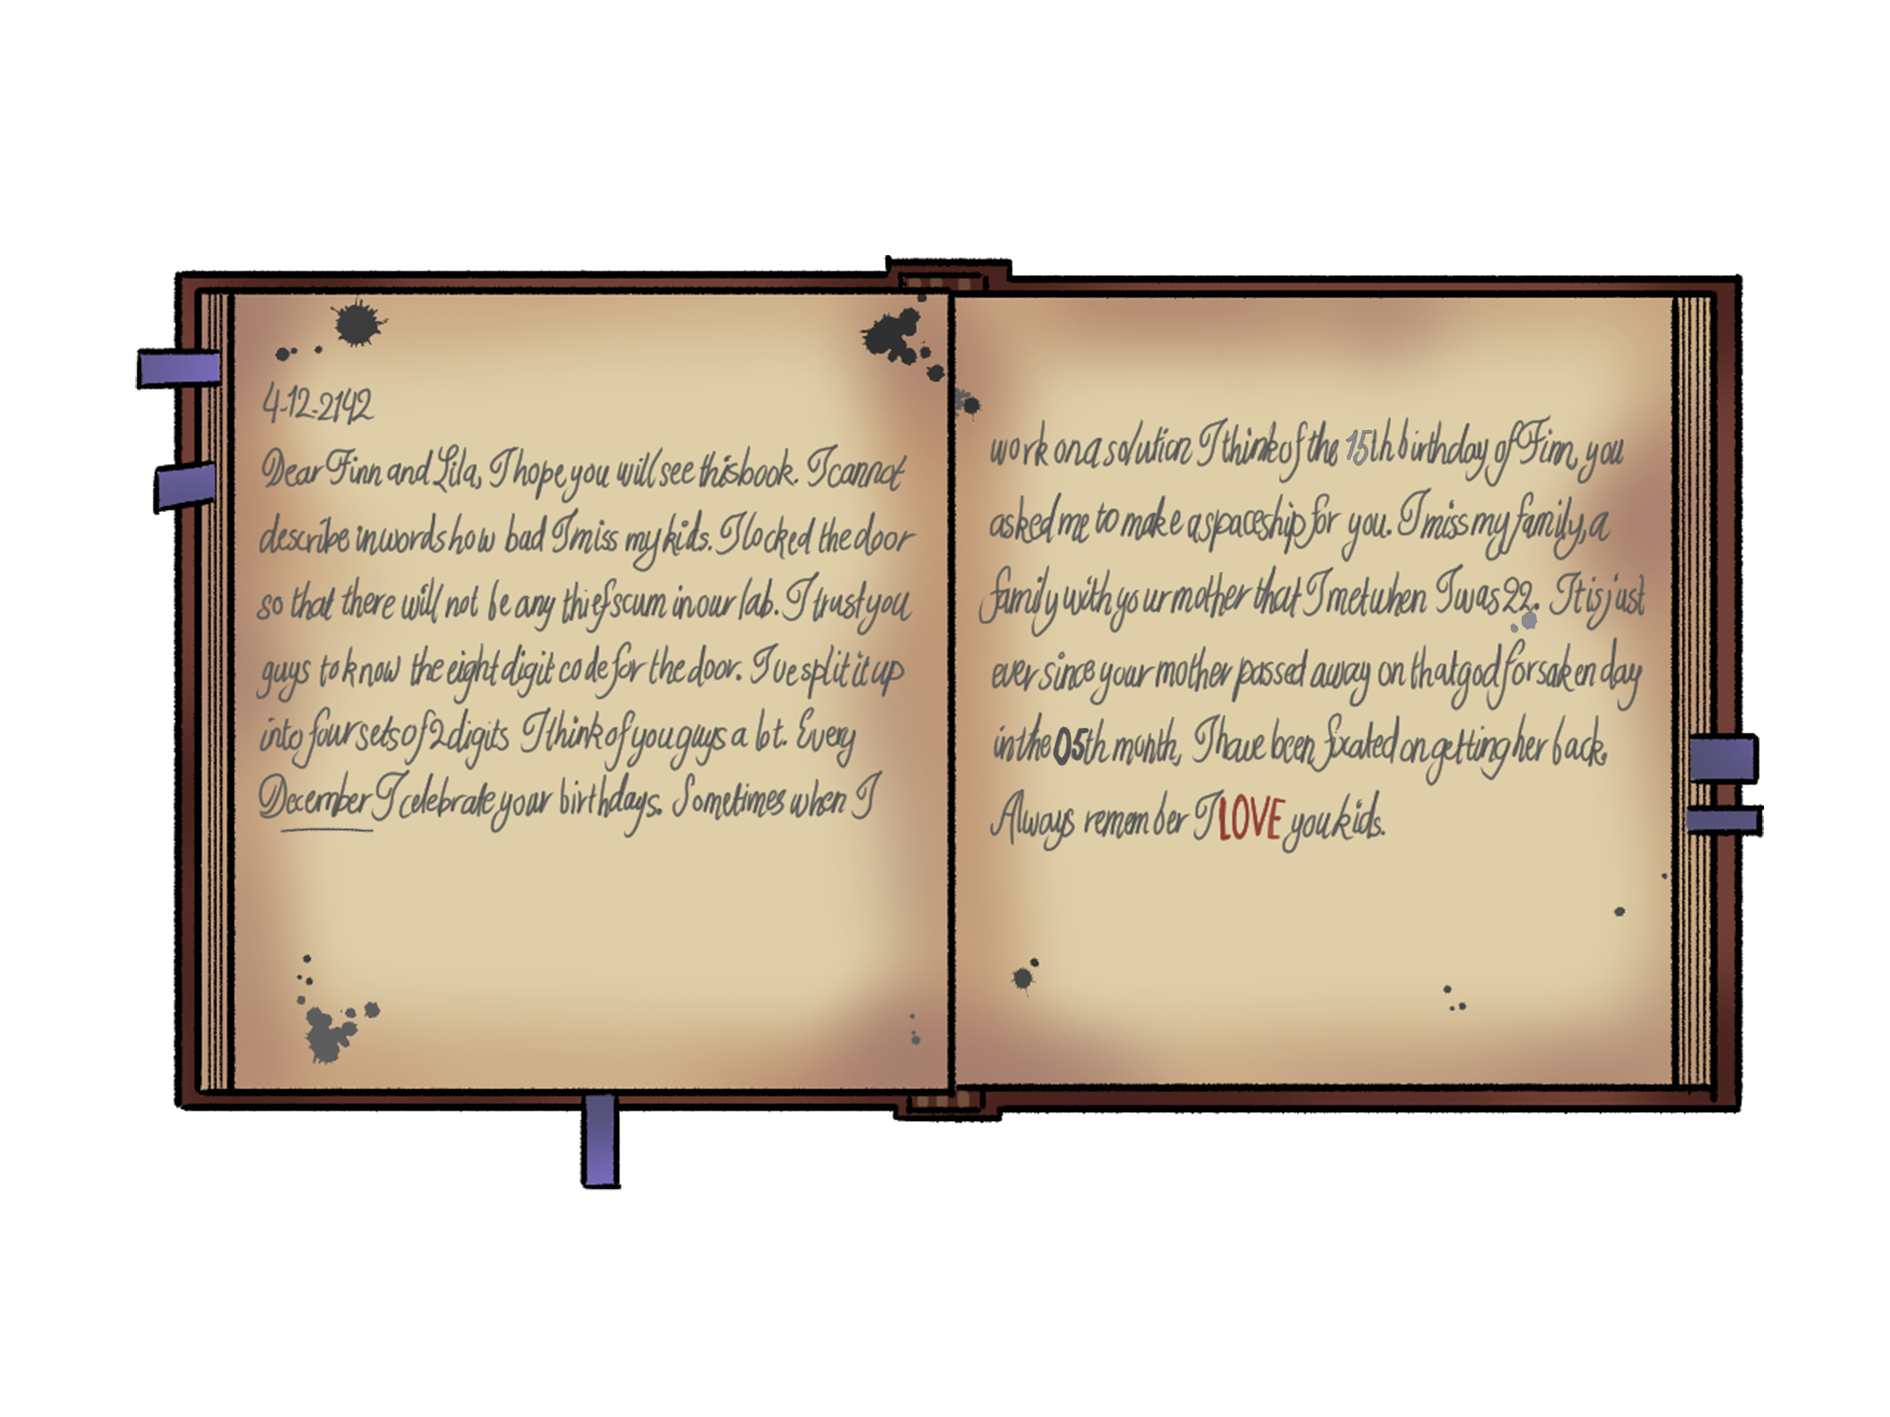 4-12-2142
Dear Finn and Lila, I hope you will see this book. I cannot
describe in words how bad I miss my kids. I locked the door
so that there will not be any thief scum in our lab. I trust you
guys to know the eight digit code for the door. I've split it up
into four sets of 2 digits I think of you guys a lot. Every
December I celebrate your birthdays. Sometimes when I
work on a solution I think of the 15th birthday of Finn, you
asked me to make a spaceship for you. I miss my family, a
family with your mother that I met when I was 22. It is just
ever since your mother passed away on that god forsaken day
in the 05th month, I have been fixated on getting her back.
Always remember I LOVE you kids.